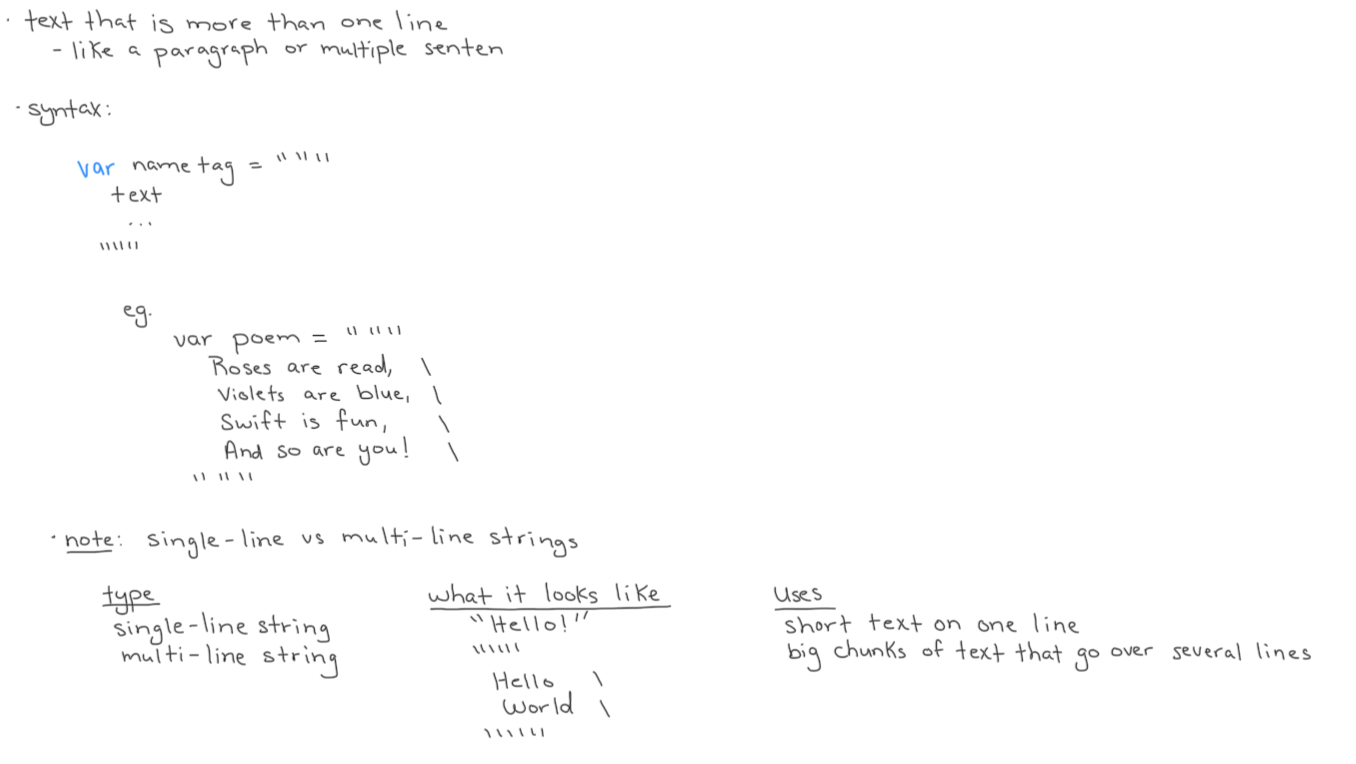 · text that is more than one line
- like a paragraph or multiple senten
· syntax:
var name tag = """
text
...
"""
eg.
var poem = """
Roses are read, \
Violets are blue, \
Swift is fun, \
And so are you! \
"""
· note: single-line vs multi-line strings
type what it looks like uses
single-line string "Hello!" short text on one line
multi-line string """ big chunks of text that go over several lines
Hello \
World \
"""